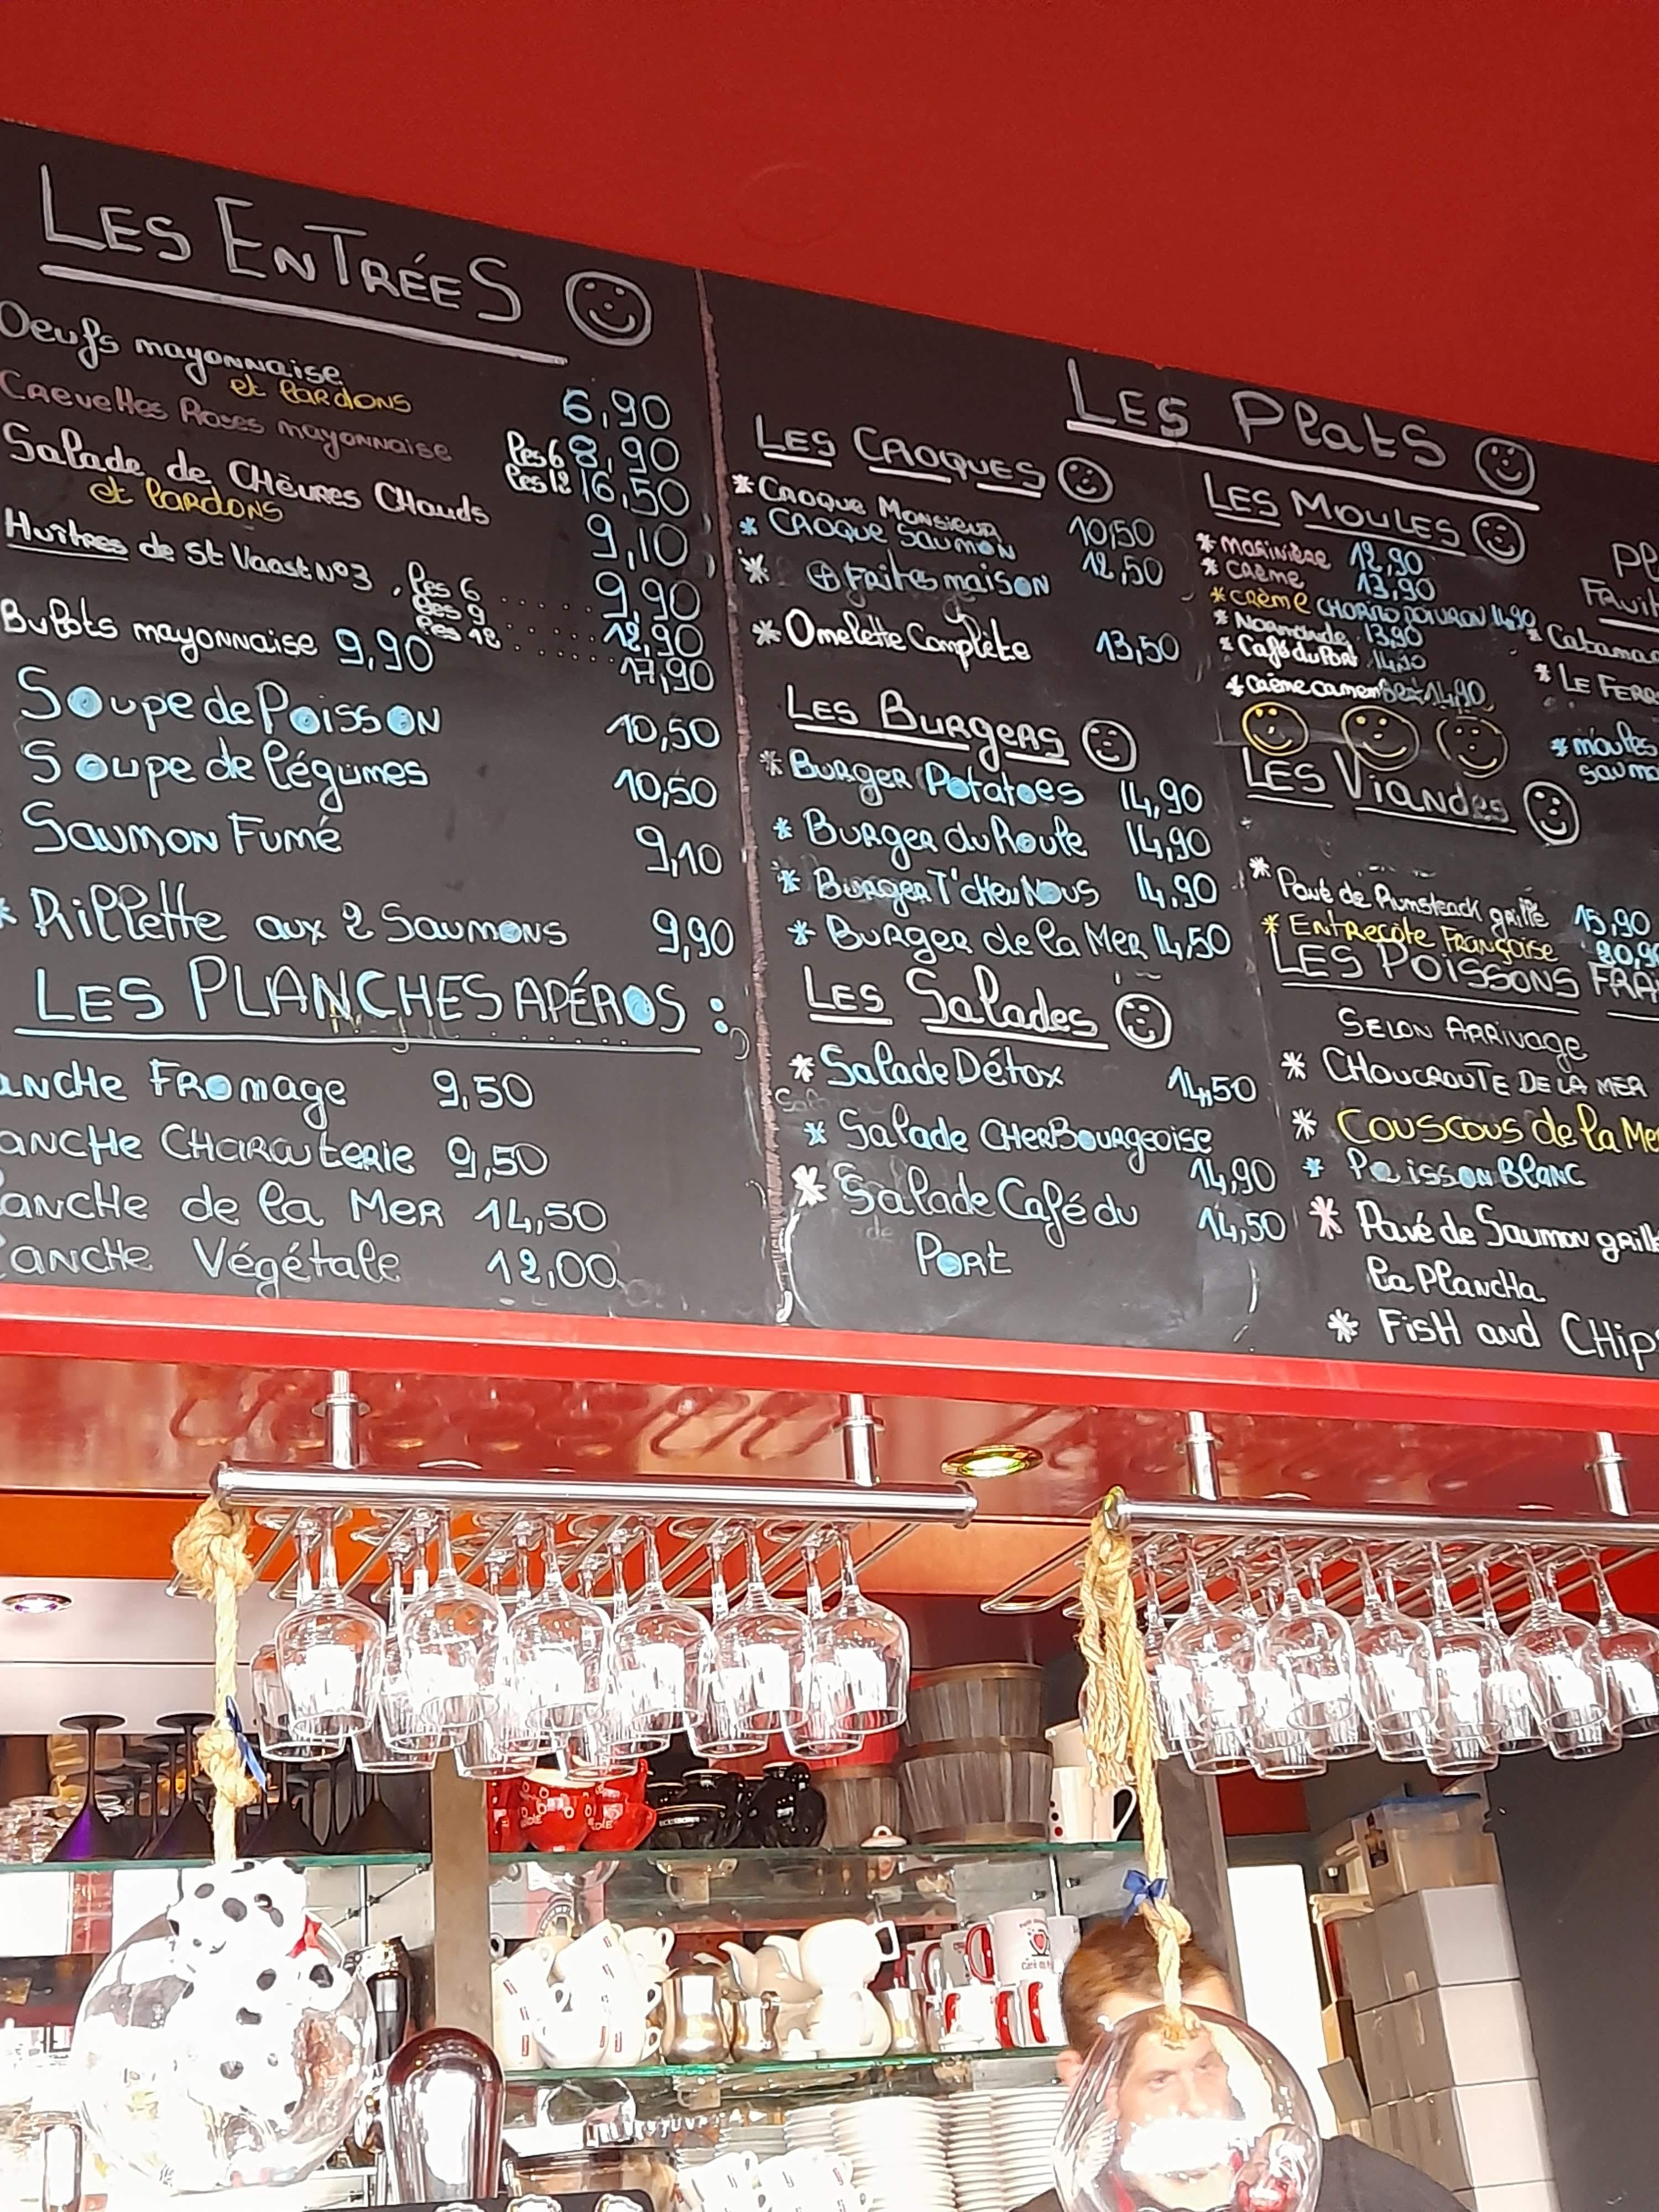 LES ENTRÉES
Oeufs mayonnaise 6,90
et lardons
Crevettes Roses mayonnaise Les 6 8,90
Les 12 16,50
Salade de Chèvres Chauds 9,10
et lardons
Huîtres de St Vaast N°3, Les 6 ..... 9,90
Les 9 ..... 12,90
Les 12 ..... 17,90
Bulots mayonnaise 9,90
Soupe de Poisson 10,50
Soupe de légumes 10,50
Saumon Fumé 9,10
* Rillette aux 2 Saumons 9,90
LES PLANCHES APÉROS :
anche Fromage 9,50
anche Charcuterie 9,50
lanche de la Mer 14,50
lanche Végétale 12,00
LES Plats
LES CROQUES
* Croque Monsieur 10,50
* Croque Saumon 12,50
* ⊕ Frites maison
* Omelette Complète 13,50
LES Burgers
* Burger Potatoes 14,90
* Burger du Roule 14,90
* Burger T'cheu Nous 14,90
* Burger de la Mer 14,50
LES Salades
* Salade Détox 14,50
* Salade Cherbourgeoise
14,90
* Salade Café du 14,50
Port
LES MOULES
* marinière 12,90
* crème 13,90
* crème chorizo poivron 14,90
* Normande 13,90
* Café du Port 14,10
* crème camembert 14,90
LES Viandes
* Pavé de Rumsteack grillé 15,90
* Entrecôte Française 20,9
LES POISSONS FRA
SELON ARRIVAGE
* CHOUCROUTE DE LA MER
* Couscous de la Me
* Poisson Blanc
* Pavé de Saumon grill
la Plancha
* Fish and Chips
Pl
Fruit
* Catamar
* LE FERR
* moules
saumo